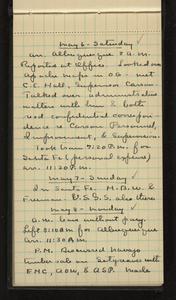 May 6 - Saturday
arr. Albuquerque 8 a.m.
Reported at Office. Looked over
Apache maps in O.G. - met
C.C. Hall, Supervisor Carson.
Talked over administrative
matters with him & both
read confidential correspon-
dence re Carson Personnel,
Improvement, & Supervision.
Took train 7:20 P.M. for
Santa Fe (personal expense)
arr. 11:30 P.M.
May 7 - Sunday
In Santa Fe. M.R.W. &
Freeman U.S.G.S. also there
May 8 - Monday
a.m. leave without pay.
Left 8:10 AM for Albuquerque
arr. 11:30 A.M.
P.M. Discussed Navajo
timber sale on Sitgreaves with
FMC, AOW, & ASP. Made